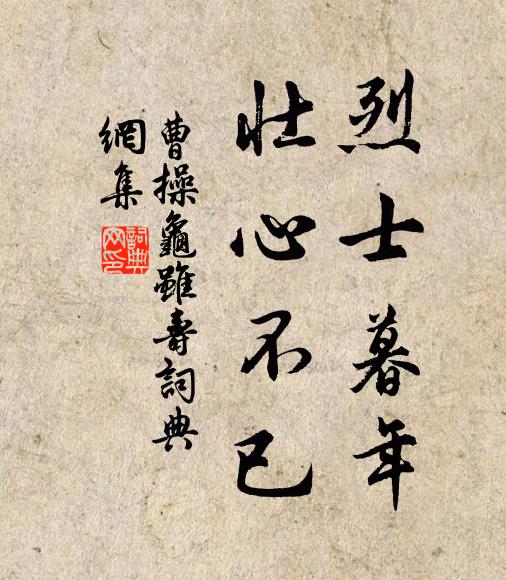 烈士暮年
壯心不已
曹操龜雖壽詞典
網集
詞典
网印